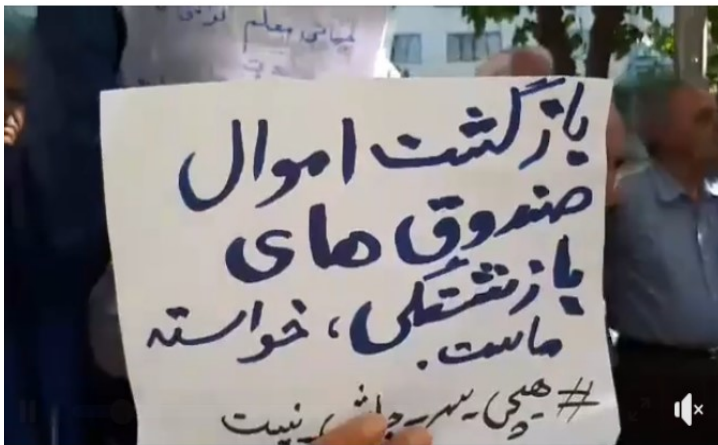 معلم
بازگشت اموال
صندوق های
بازنشتگی، خواسته
ماست.
#هیچی_سر_جاش_نیست